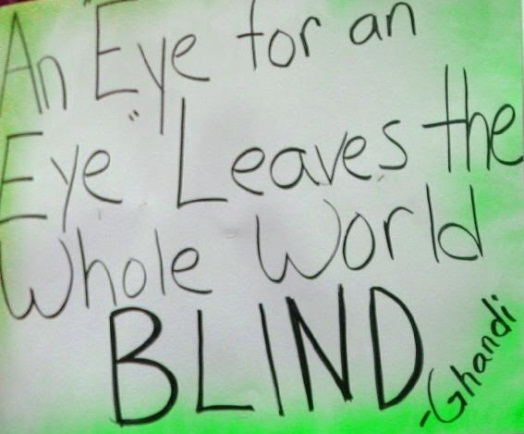 "An Eye for an
Eye Leaves the
Whole World
BLIND
-Ghandi